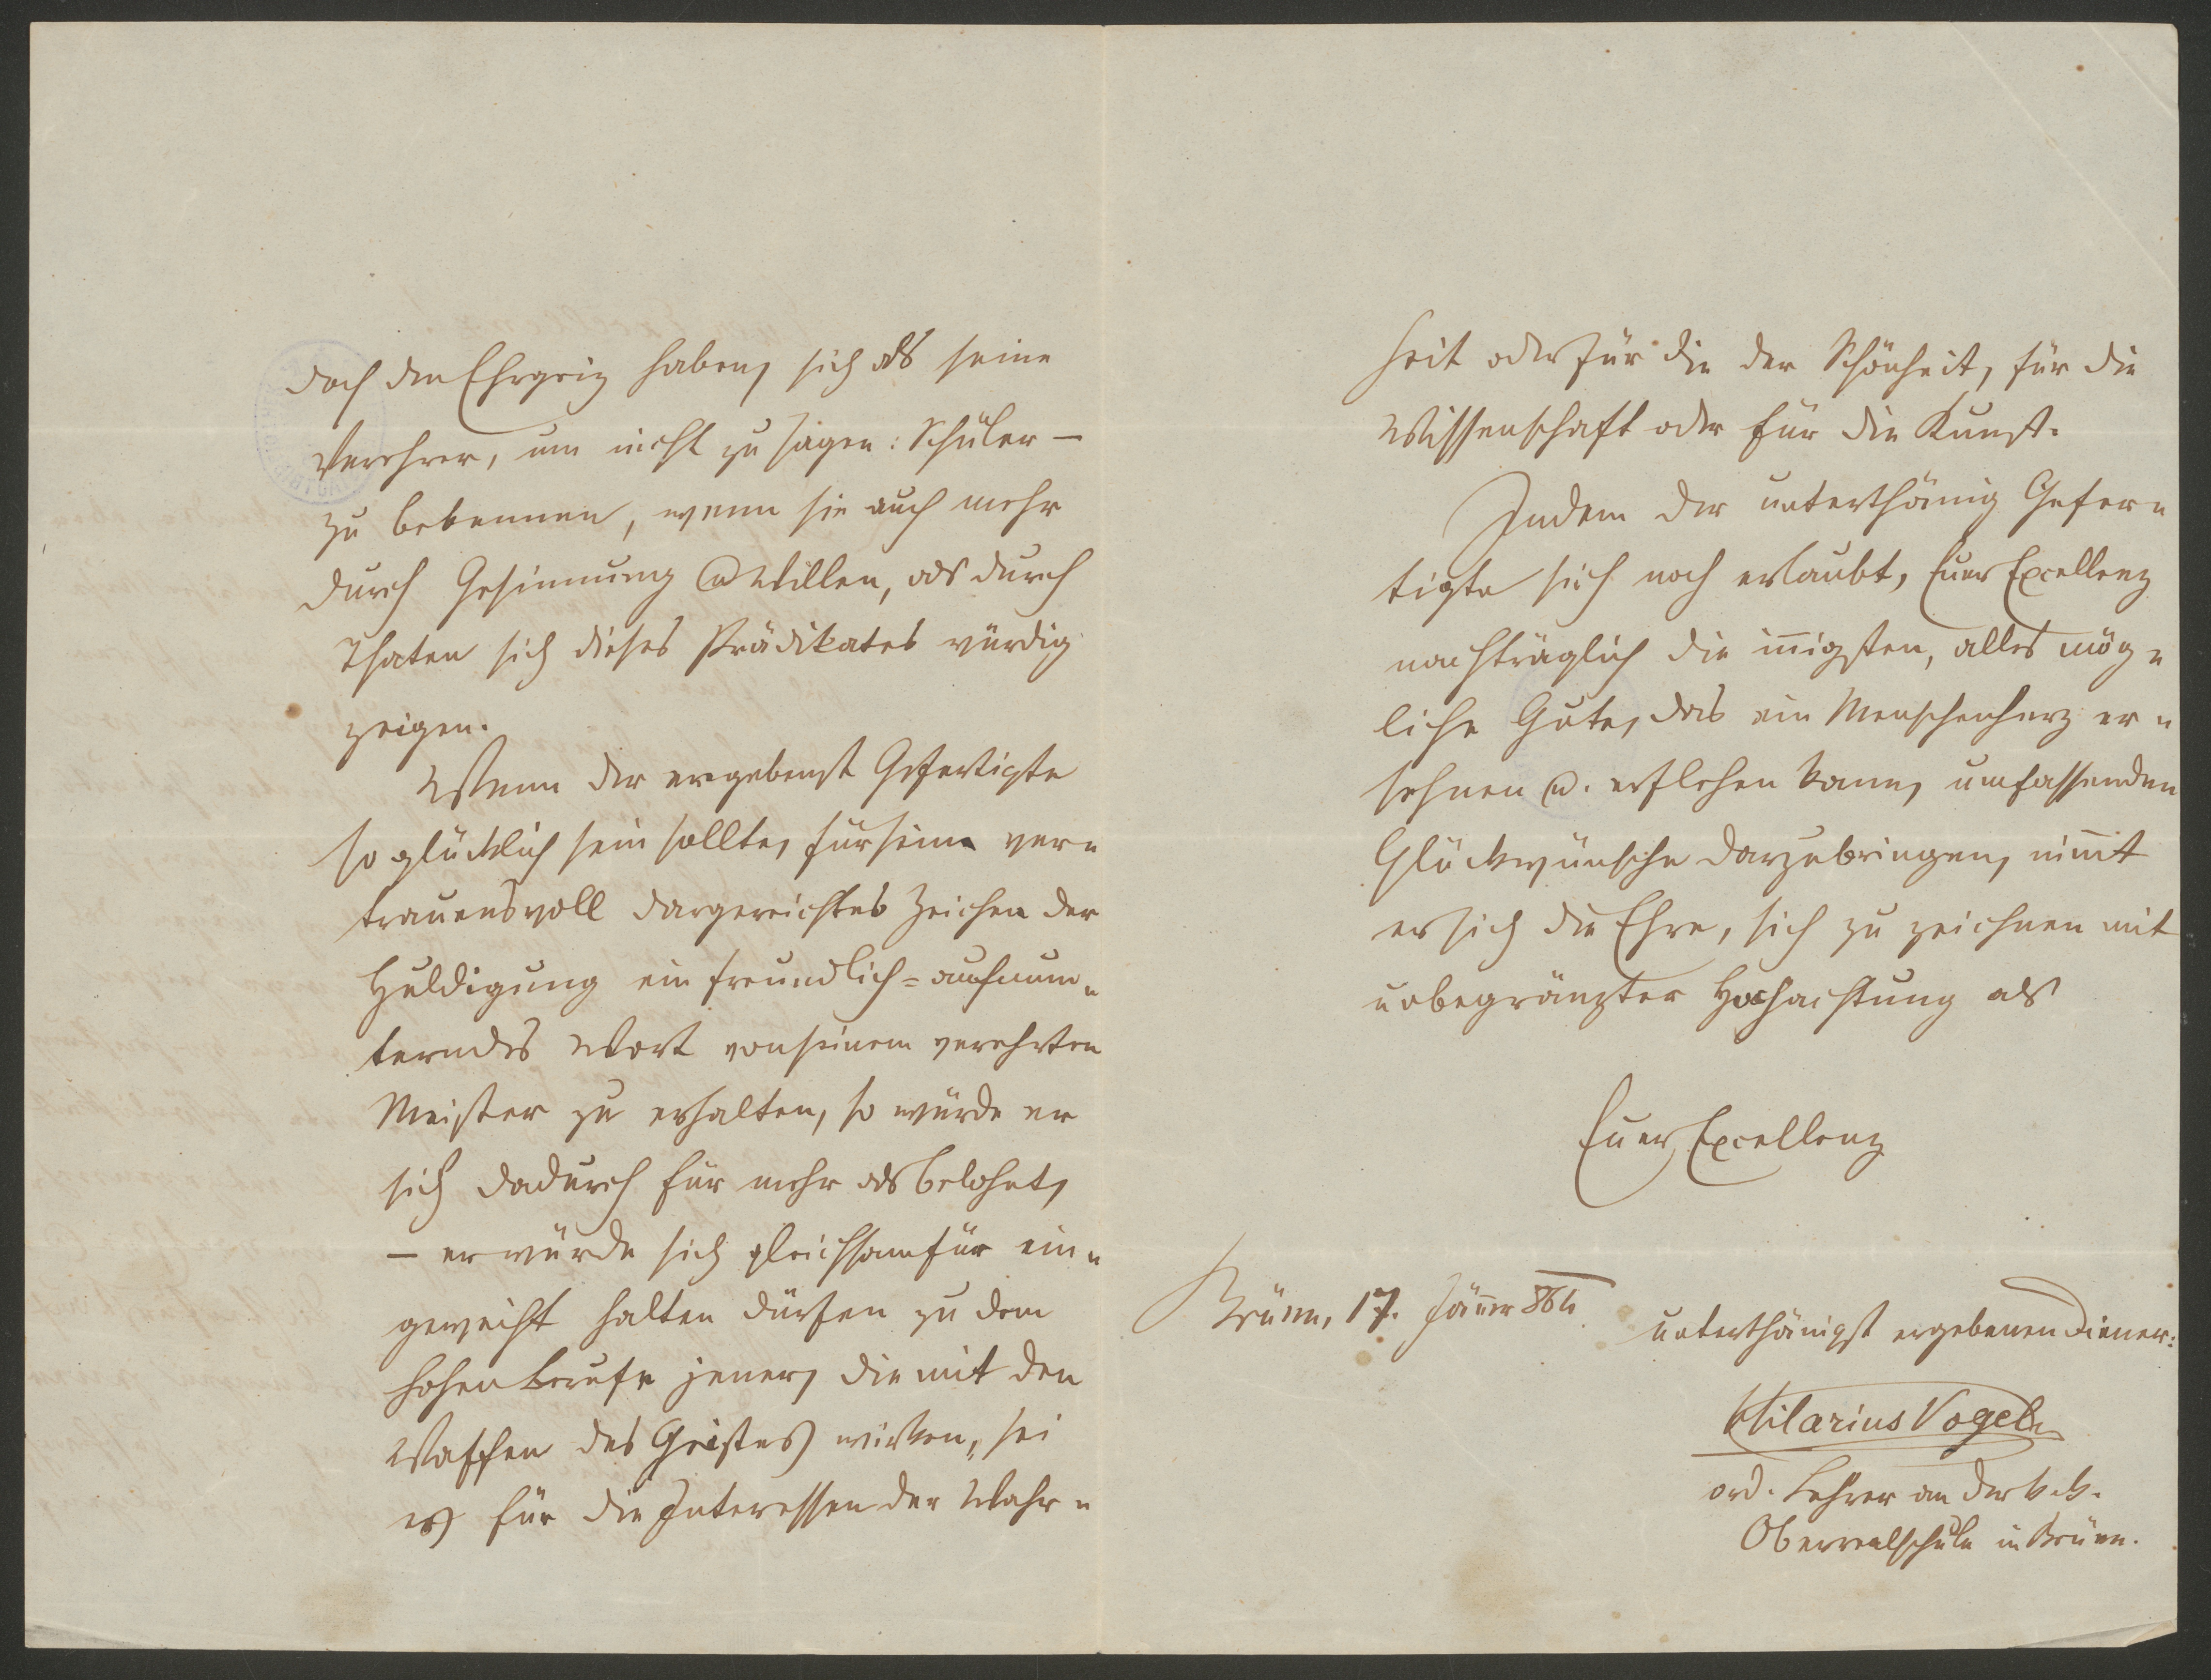 doch den Ehrgeiz haben, sich als seine
Verehrer, um nicht zu sagen: Schüler –
zu bekennen, wenn sie auch mehr
durch Gesinnung u Willen, als durch
Thaten sich dieses Prädikates würdig
zeigen.
Wenn der ergebenst Gefertigte
so glücklich sein sollte, für sein ver=
trauensvoll dargereichtes Zeichen der
Huldigung ein freundlich=aufmun=
terndes Wort von seinem verehrten
Meister zu erhalten, so würde er
sich dadurch für mehr als belohnt,
– er würde sich gleichsam für ein=
geweiht halten dürfen zu dem
hohen Berufe jener, die mit den
Waffen des Geistes wirken, sei
es für die Interessen der Wahr=
heit oder für die der Schönheit, für die
Wissenschaft oder für die Kunst.
Indem der unterthänig Gefer=
tigte sich noch erlaubt, Euer Excellenz
nachträglich die iñigsten, alles mög=
liche Gute, das ein Menschenherz er=
sehnen u. erflehen kann, umfassenden
Glückwünsche darzubringen, nim̄t
er sich die Ehre, sich zu zeichnen mit
unbegränzter Hochachtung als
Euer Excellenz
Brünn, 17. Jäñer 864
unterthänigst ergebenen Diener:
Hilarius Vogel
ord. Lehrer an der k. k.
Oberrealschule in Brünn.